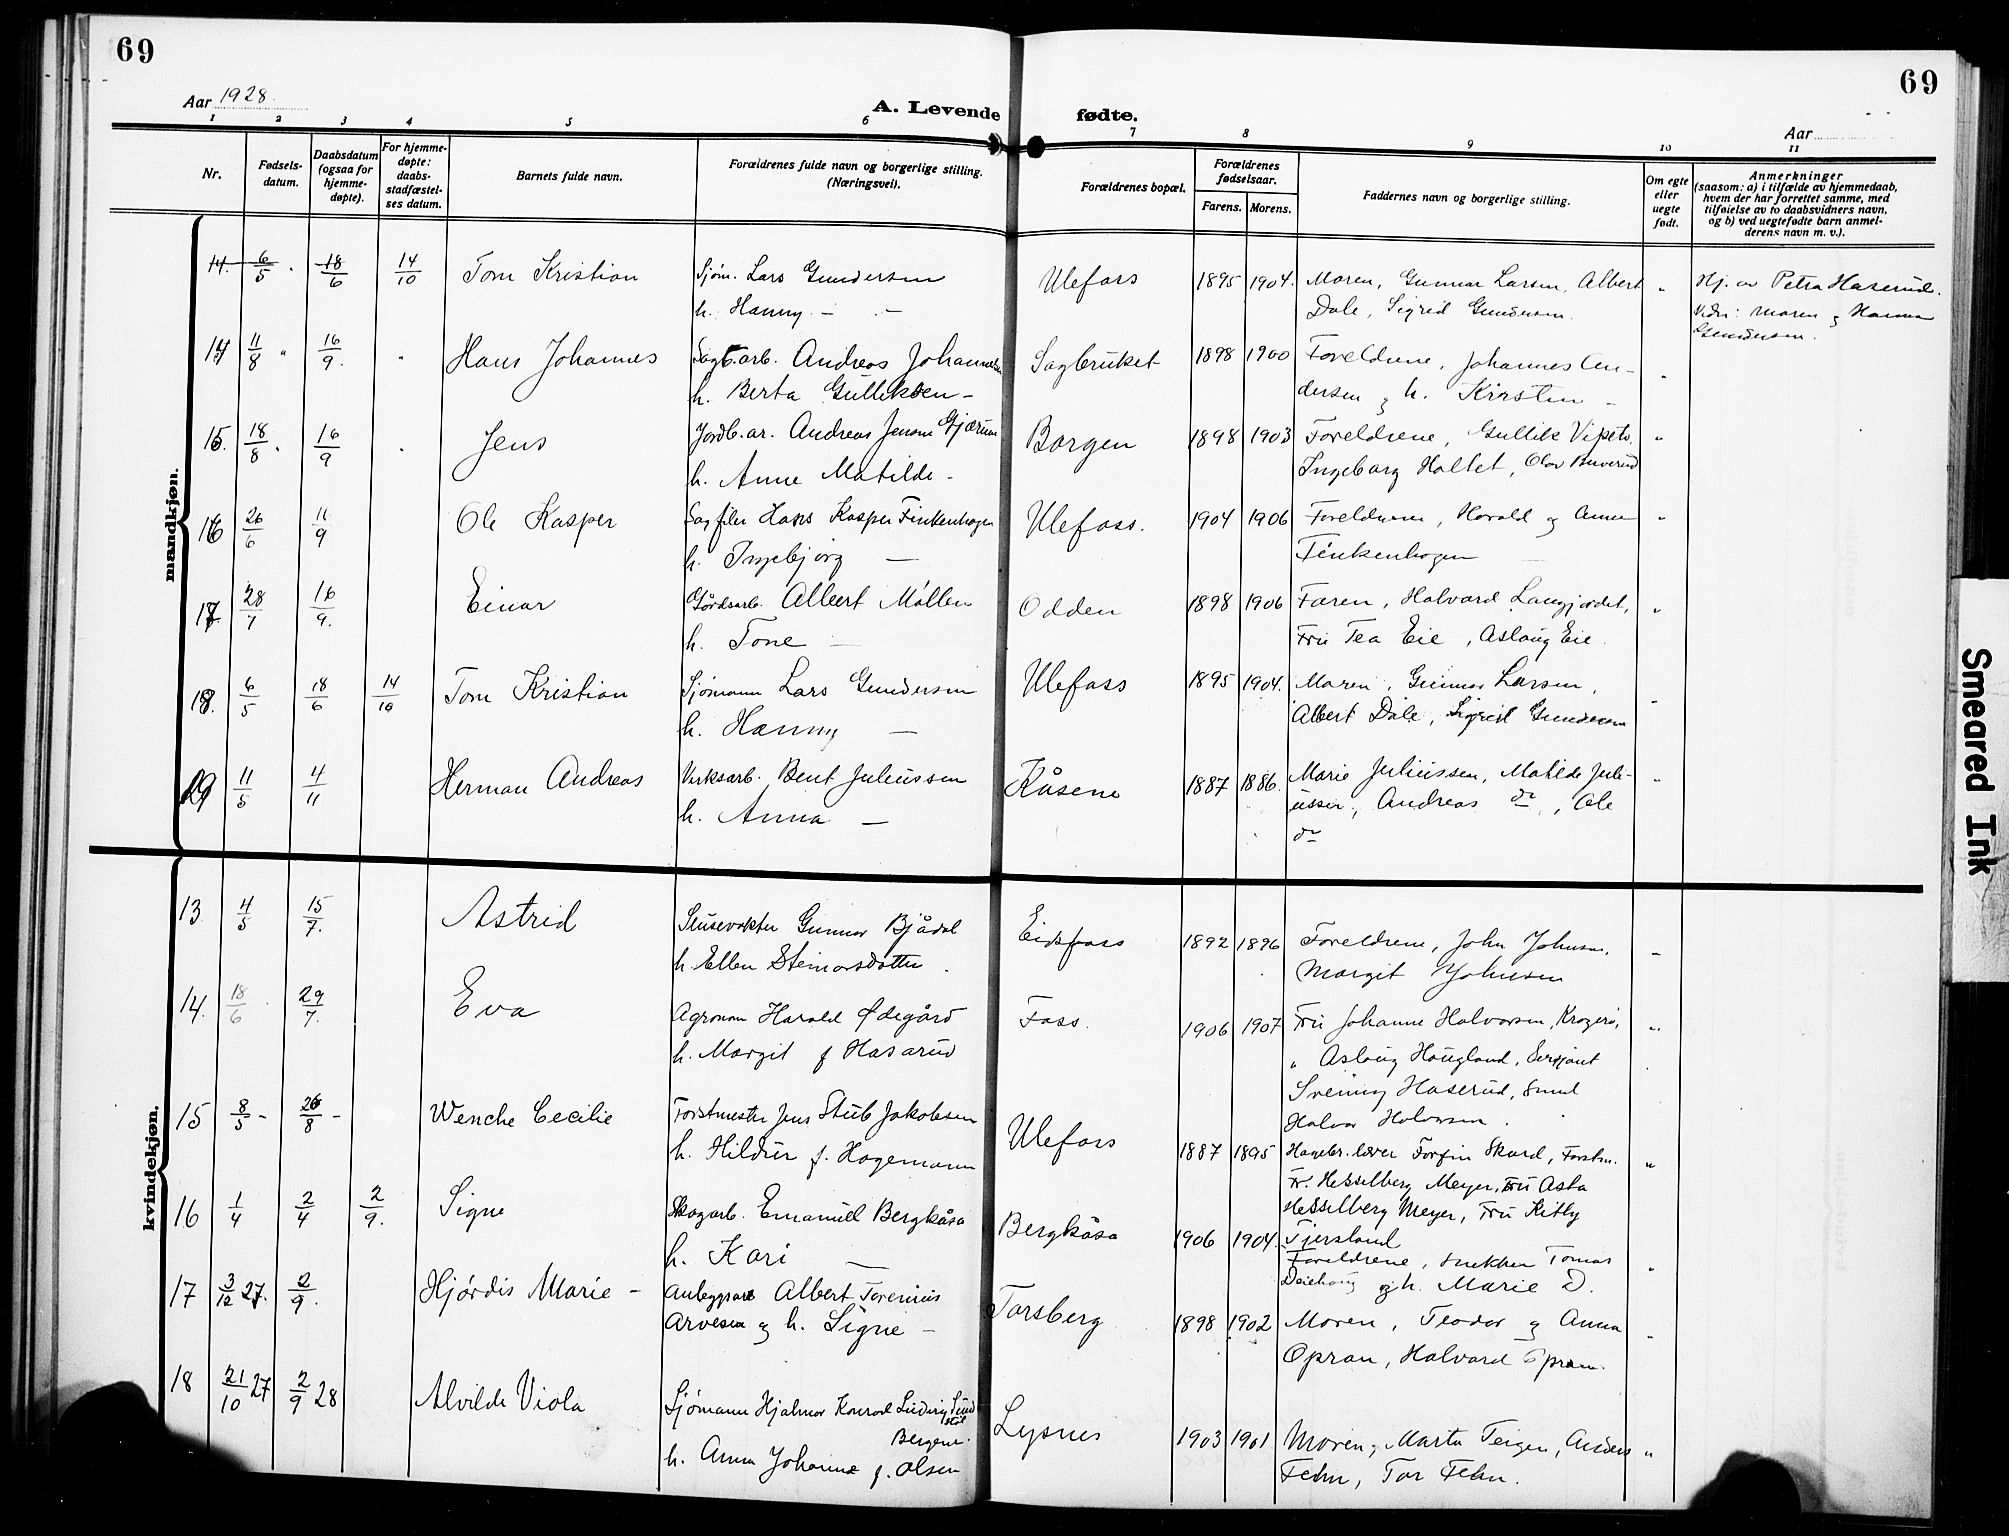 69
69
Aar 1928.
A. Levende fødte.
Aar
1 2 3 4 5 6 7 8 9 10 11
Nr.
Fødsels-
datum.
Daabsdatum
(ogsaa for
hjemme-
døpte).
For hjemme-
døpte:
daabs-
stadfæstel-
ses datum.
Barnets fulde navn.
Forældrenes fulde navn og borgerlige stilling.
(Næringsvei).
Forældrenes bopæl.
Forældrenes
fødselsaar.
Farens. Morens.
Faddernes navn og borgerlige stilling.
Om egte
eller
uegte
født.
Anmerkninger
(saasom: a) i tilfælde av hjemmedaab,
hvem der har forrettet samme, med
tilføielse av to daabsvidners navn,
og b) ved uegtefødte barn anmel-
derens navn m. v.).
mandkjøn.
14. 6/5 18/6 14/10 Tom Kristian Sjøm. Lars Gundersen Ulefoss 1895 1904. Moren, Gunnar Larsen, Albert " Hj. av Petra Haserud.
h. Hanny — Dale, Sigrid Gundersen. Vidn: moren og Hanna
Gundersen.
14 11/8 16/9. Hans Johannes Sagb.arb. Andreas Johannesen Sagbruket 1898 1900 Foreldrene, Johannes An-
h. Berta Gulliksen — dersen og h. Kirsten —
15. 18/8 16/9 Jens Jordb.ar. Andreas Jensen Gjærum Borgen 1898 1903 Foreldrene, Gullik Vipeto, "
h. Anne Matilde - Ingeborg Holtet, Olav Buverud
16 26/6 11/9 Ole Kasper Sagfiler Hans Kasper Finkenhagen Ulefoss. 1904 1906 Foreldrene, Harald og Anna "
h. Ingebjørg — Finkenhagen
17. 28/7 16/9. Einar Gårdsarb. Albert Mollen Odden 1898 1906 Faren, Halvard Langjordet, "
h. Tone — Fru Tea Eie, Aslaug Eie.
18. 6/5 18/6 14/10 Tom Kristian Sjømann Lars Gundersen Ulefoss 1895 1904. Moren, Gunnar Larsen,
h. Hanny — Albert Dale, Sigrid Gundersen
11/5 4/11 Herman Andreas Verksarb. Bent Juliussen Kåsene 1887 1886. Marie Juliussen, Matilde Juli- "
h. Anna — ussen, Andreas do, Ole
do
kvindekjøn.
13 4/5 15/7. Astrid Slusevokter Gunnar Bjådal Eidsfoss 1892 1896 Foreldrene, John Johnsen,
h. Ellen Steinarsdotter. Margit Johnsen
14. 18/6 29/7. Eva Agronom Harald Ødegård Foss. 1906 1907 Fru Johanne Halvorsen, Kragerø, "
h. Margit f Hasarud " Aslaug Haugland, Sersjant
Sveinung Haserud, Smed
Halvor Halvorsen.
15 8/5 - 26/8 - Wenche Cecilie Forstmester Jens Stub Jakobsen Ulefoss 1887 1895 Hagebr.lærer Torfin Skard, Forstm. "
h. Hildur f. Hagemann Fr. Hesselberg Meyer, Fru Asta
Hesselberg Meyer, Fru Kitty
Tjersland
16 1/4 2/4 2/9. Signe Skogarb. Emanuel Bergkåsa Bergkåsa 1906 1904. Foreldrene, snekker Tomas
h. Kari — og h. Marie D.
17 3/12 27. 2/9. Hjørdis Marie - Anleggsarb Albert Torenius Torsberg 1898 1902 Moren, Teodor og Anna
Arvesen og h. Signe — Opran, Halvard Opran.
18 21/10 27 2/9 28 Alvilde Viola Sjømann Hjalmar Konrad Ludvig Lysnes 1903 1901 Moren, Marta Teigen, Anders "
Bergene. Fehn, Tor Fehn.
h. Anna Johanne f. Olsen
Smeared Ink